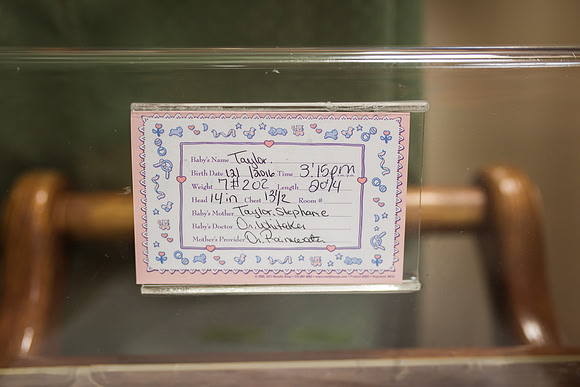 Baby's Name Taylor,
Birth Date 12/1/2016 Time 3:15pm
Weight 7#2oz Length 20 1/4
Head 14in Chest 13 1/2 Room #
Baby's Mother Taylor, Stephane
Baby's Doctor Dr. Whitaker
Mother's Provider Dr. Rainwater